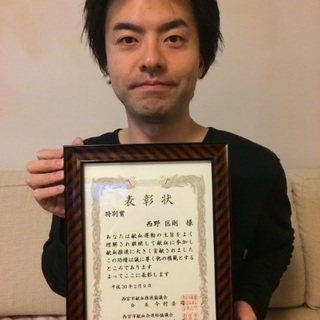 表彰状
特別賞
西野 匡則 様
あなたは献血運動の主旨をよく
理解され継続して献血に参加し
献血推進に大きく貢献されました
この功績は誠に尊く他の模範とする
ところであります
よってここに表彰します
西宮市献血推進協議会
会 長 今村岳